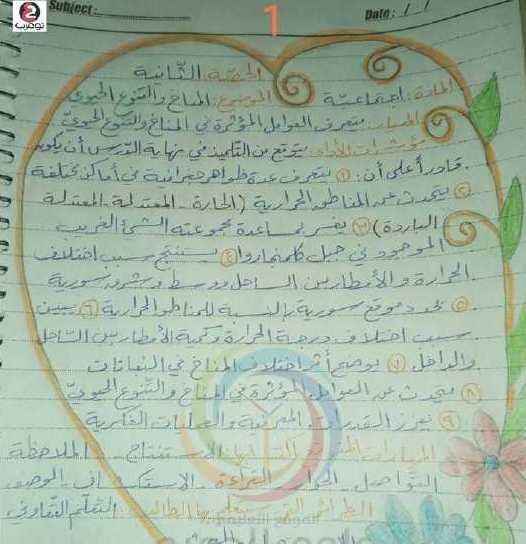 Subject:
Date: / /
1
توهرب
الحصة الثانية
المادة: اجتماعية الموضوع: المناخ والتنوع الحيوي
المعيار: يتعرف العوامل المؤثرة في المناخ والتنوع الحيويّ
مؤشرات الأداء: يتوقع من التلميذ في نهاية الدرس أن يكون
قادراً على أن: ① يتعرف عدة ظواهر جغرافية في أماكن مختلفة
② يتحدث عن المناطق الحرارية (الحارة - المعتدلة - المعتدلة
الباردة) ③ يفسر بمساعدة مجموعته الشيء الغريب
الموجود في جبل كلمنجارو ④ يستنتج سبب اختلاف
الحرارة والأمطار بين الساحل ووسط وشرق سورية
⑤ يحدد موقع سورية بالنسبة للمناطق الحرارية ⑥ يبين
سبب اختلاف درجة الحرارة وكمية الأمطار بين الساحل
والداخل ⑦ يوضح أثر اختلاف المناخ في النباتات
⑧ يتحدث عن العوامل المؤثرة في المناخ والتنوع الحيويّ
⑨ يعزز القدرات المعرفية والعمليات الفكرية
المهارات الاستنتاج - الملاحظة
التواصل - الحوار - القراءة - الاستكشاف - الوصف
الطرائق التي سيتعلم بها الطالب: التعلّم التعاوني